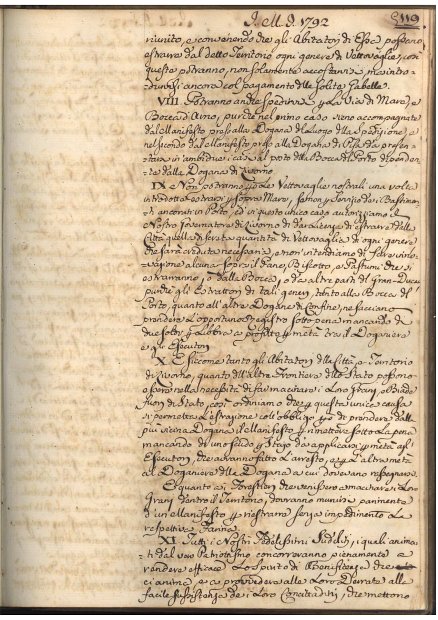 J. M. J. 1792
119
riunito, e convenendo che gli Abitatori di Esse possano
estrarre dal detto Territorio ogni genere di Vettovaglie, con
queste potranno, non solamente accostarsi, ma intro-
dursi ancora col pagamento delle solite Gabelle.
VIII. Potranno anche spedirsi per la Via di Mare, e
Bocca d'Arno, purchè nel primo caso sieno accompagnate
dal Manifesto presso alla Dogana del Luogo della Spedizione, e
nel secondo dal Manifesto preso alla Dogana di Pisa da presen-
tarsi in ambidue i casi al posto della Bocca del Porto dipenden-
te dalla Dogana di Livorno.
IX. e Non potranno per Vettovaglie nostrali una volta
introdotte estrarsi per sopra Mare, se non per servizio dei Bastimen-
ti ancorati in Porto, ed in questo unico caso autorizziamo il
Nostro Governatore di Livorno di dar Licenza di estrarre dalla
Città quella discreta quantità di Vettovaglie di ogni genere
che sarà creduta necessaria, e non intendiamo di fare inno-
vazione alcuna per il Pane, Biscotto, e Pastumi che si
estrarranno, o dalla Bocca, o da altre parti del Gran-Ducato
purchè gli Estrattori di tali generi, tanto alla Bocca del
Porto, quanto alle altre Dogane di Confine, ne facciano
prendere l'opportuno registro sotto pena mancando di
due soldi per Libbra a profitto per metà tra il Doganiere
e gli Esecutori.
X. E siccome tanto gli Abitatori della Città, e Territorio
di Livorno, quanto dell'altre Frontiere dello Stato possono
essere nella necessità di far macinare i Loro Grani, e Biade
fuori di Stato, così ordiniamo che per questa unica causa
si permetta l'estrazione coll'obbligo però di prendere dalla
più vicina Dogana il Manifesto, per rimettere sotto la pena
mancando di uno scudo per Stajo da applicarsi per metà agl'
Esecutori, che avranno fatto l'arresto, e per l'altra metà
al Doganiere della Dogana a cui dovevano rassegnare.
E quanto ai Forestieri che venissero a macinare i Loro
Grani dentro il Territorio, dovranno munirsi parimente
d'un Manifesto per riestrarre senza impedimento Le
respettive Farine.
XI. Tutti i Nostri Fedelissimi Sudditi, i quali anima-
ti dal vero Patriottismo concorreranno pienamente a
rendere efficace Lo spirito di Beneficenza che
ci anima, e a provvedere alle Loro Derrate alla
facile sussistenza dei Loro Concittadini, che mettono